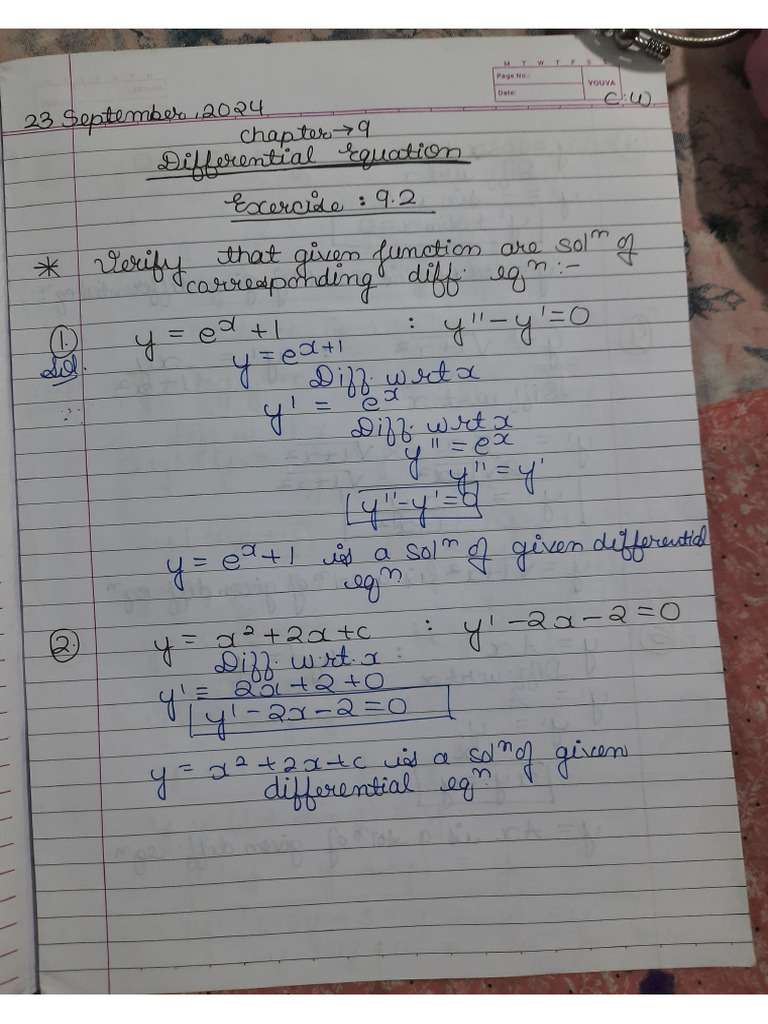 M T W T F S S
Page No.:
Date:
YOUVA
23 September, 2024
C.W.
Chapter → 9
Differential Equation
Exercise : 9.2
* Verify that given function are solⁿ of
corresponding diff. eqⁿ :-
1. y = eˣ + 1 : y'' - y' = 0
Sol. y = eˣ + 1
Diff. wrt x
∴ y' = eˣ
Diff. wrt x
y'' = eˣ
y'' = y'
y'' - y' = 0
y = eˣ + 1 is a solⁿ of given differential
eqⁿ
2. y = x² + 2x + c : y' - 2x - 2 = 0
Diff. w.r.t. x :
y' = 2x + 2 + 0
y' - 2x - 2 = 0
y = x² + 2x + c is a solⁿ of given
differential eqⁿ.